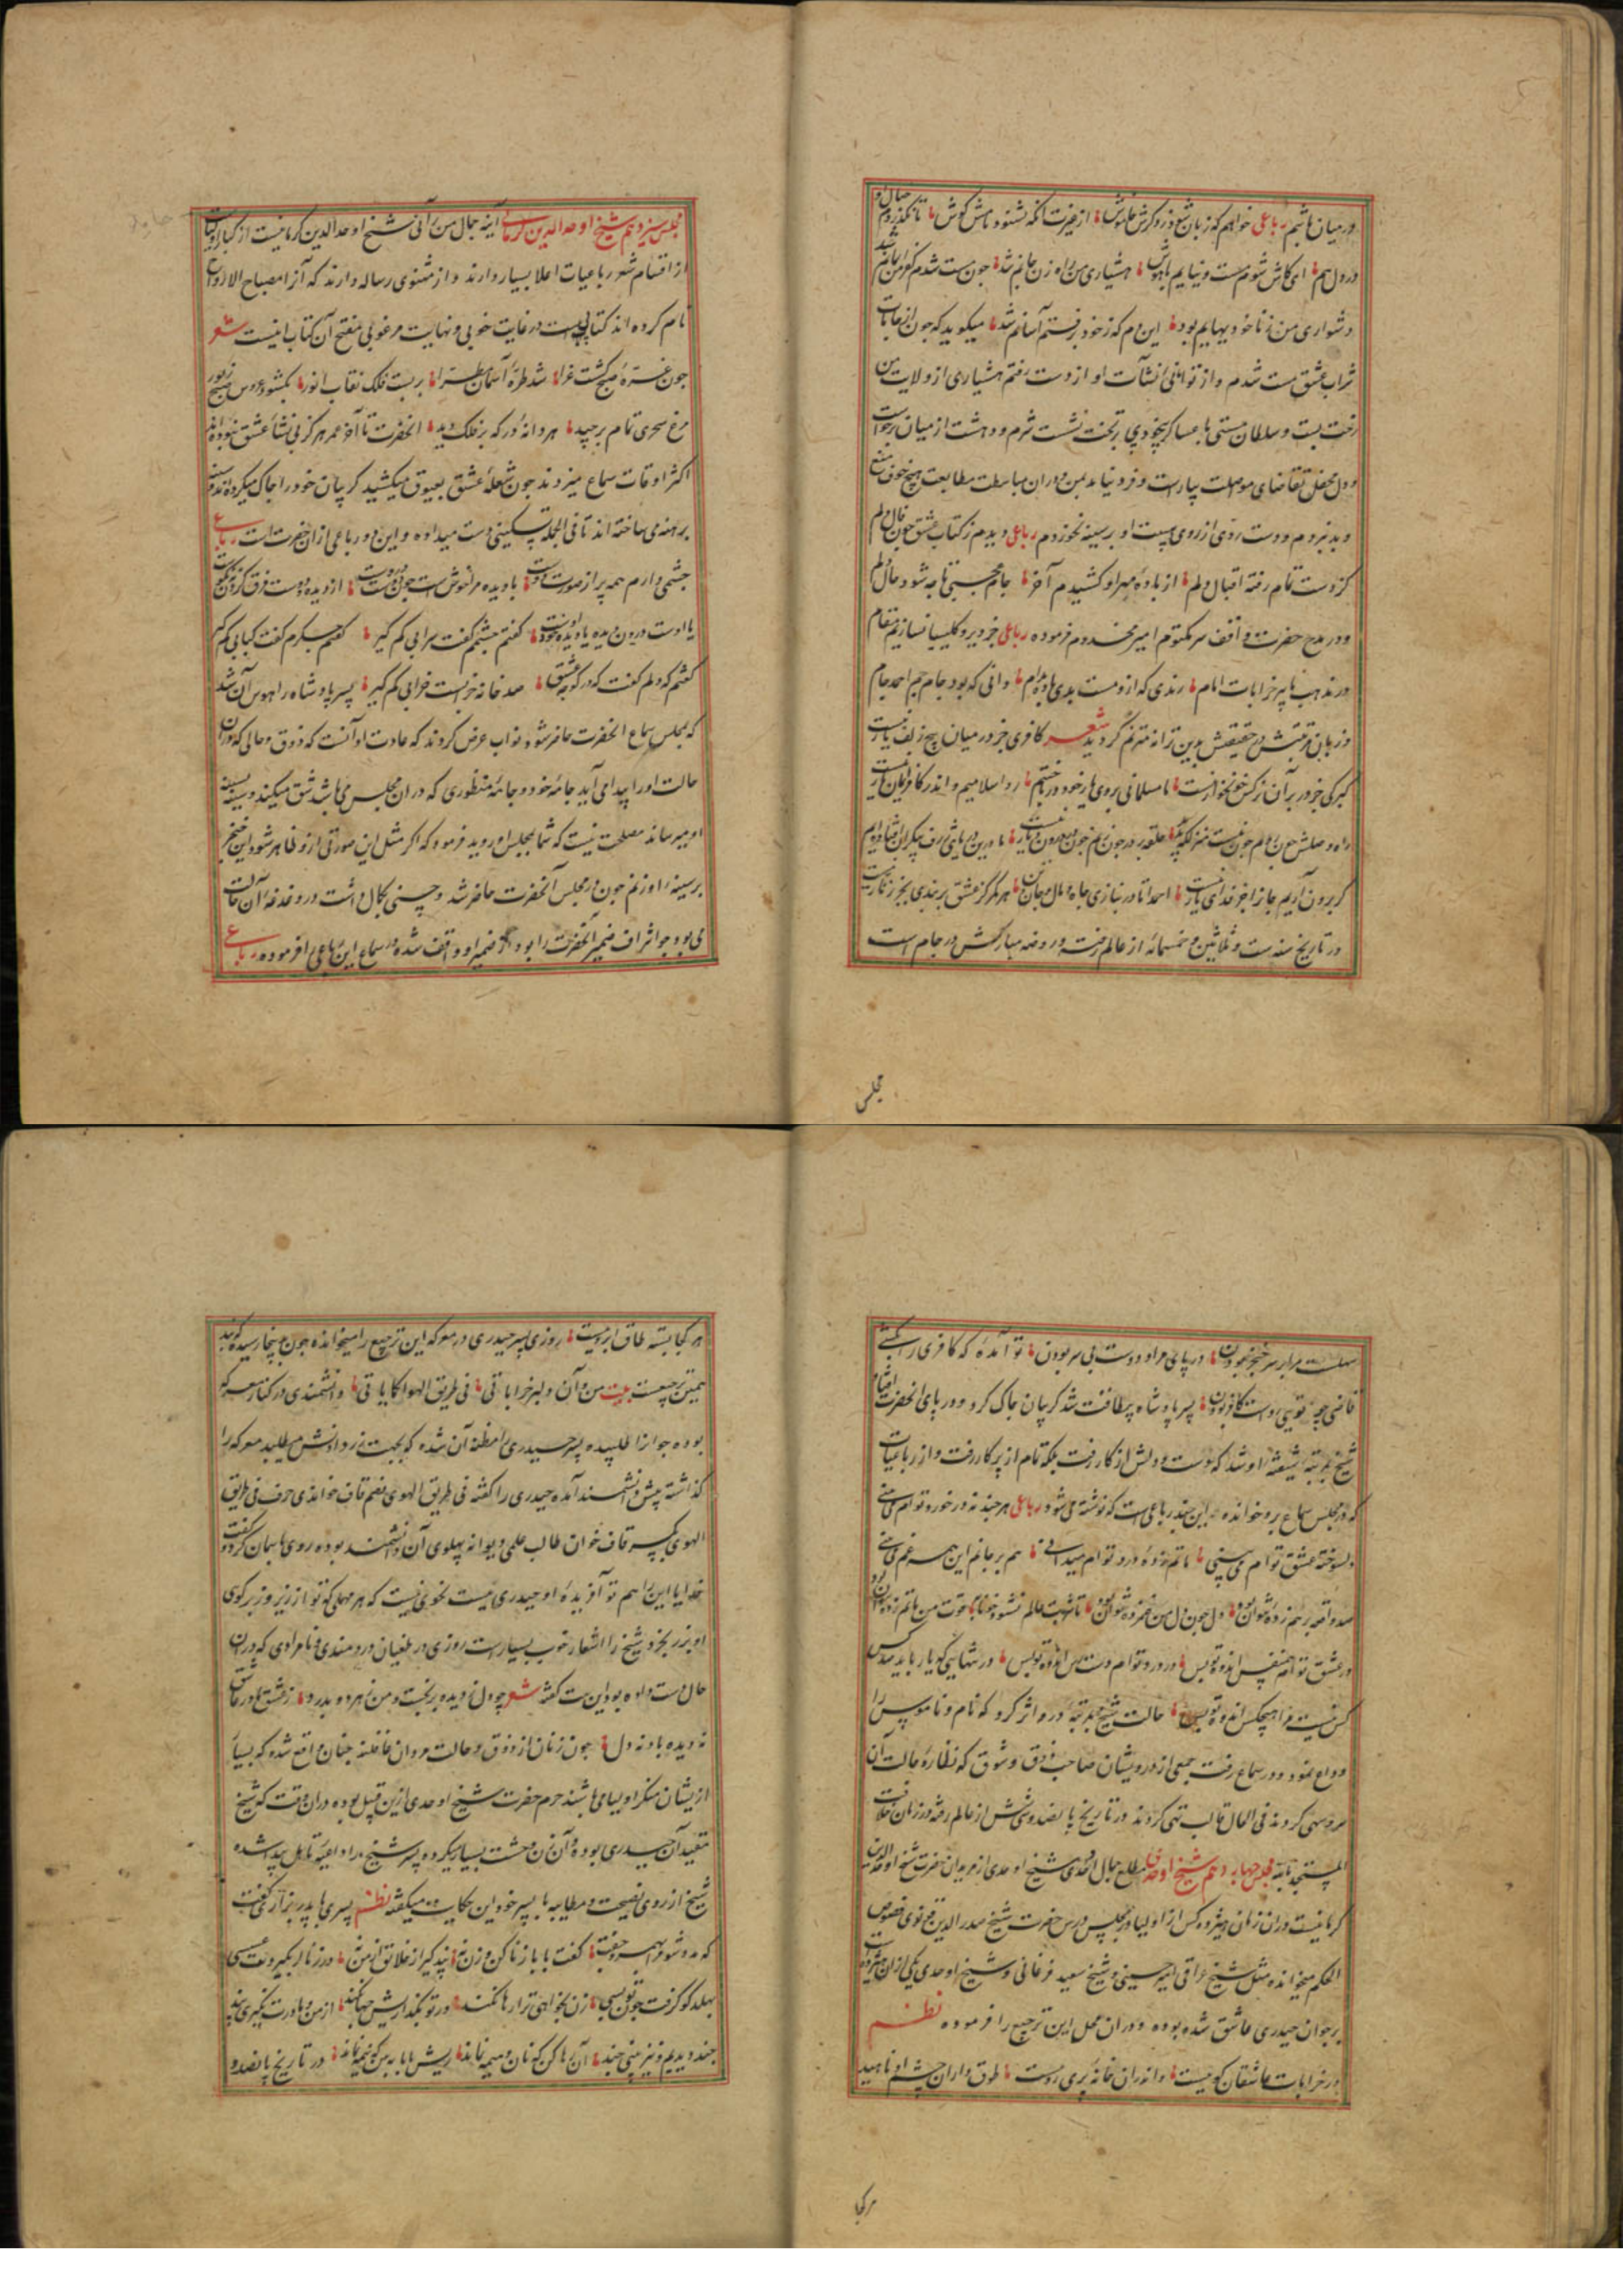 در میان باشیم رباعی خواهم که زبان شمع و زو کرش خاموش از غیرت انکه نشنود نامش کوش تا نگذرد
در دل هم ای کاش شوم مست و نیایم باهوش هشیاری من راه زن جانم شد چون مست شدم کفر من ایمانم شد
دشواری من ز ناخود بهایم بود این دم که ز خود برفتم آسانم شد میکوید که چون از
شراب عشق مست شدم و از توانائی نشآت او از دست رفتم هشیاری از ولایت من
رخت بست و سلطان مستی با عساکر بیخودی بر تخت نشست شرم و دهشت از میان برخواست
و دل محفل تقاضای مواصلت بیاراست و فرو نیامد بمن و در ان مباسطت مطایبت هیچ خوف
و بدنبردم و دست روی از روی پیست او بر سینه نخوردم رباعی دیدم ز کتاب عشق چون فال دلم
کز دست تمام رفته اقبال دلم از باده مهر او کشیدم آخر جام محبتی تا چه شود حال دلم
و در مدح حضرت واقف سر مکتوم امیر مخدوم فرموده رباعی جز دیر و کلیسیا نسازیم مقام
در مذهب ما پیر خرابات امام رندی که ازو مست بدی باده مدام دانی که بود جام جم احمد جام
و زبان حقیقتش بدین ترانه مترنم گردید شعر کافری جز در میان پیچ زلف یار نیست
کبرکی جز در بر آن نرکس خونخوار نیست تا مسلمانی بروی یار خود در باختیم رو اسلامیم و اندر کافری مان عار نیست
کر برون آریم جانرا جز فدای یار نیست احمدا تا در نبازی جاه و مال و جان و تن هر کمر کز عشق بر بندی بجز زنار نیست
در تاریخ سنه ست و ثلاثین و خمسمائه از عالم رفته و روضه مبارکش در جام است
مجلس
مجلس سیزدهم شیخ اوحد الدین کرمانی آینه جمال من رآنی شیخ اوحد الدین کرمانیست از کبار اولیاست
از اقسام شعر رباعیات اعلا بسیار دارند و از مثنوی رساله دارند که آنرا مصباح الارواح
نام کرده اند کتابیست در غایت خوبی و نهایت مرغوبی مفتح آن کتاب اینست شعر
چون غرهٔ صبح کشت غرا شد طرهٔ آسمان مطرا بر بست فلک نقاب انور بکشود عروس صبح زیور
مرغ سحری تمام برچید هر دانهٔ در که بر فلک دید انحضرت تا آخر عمر هرکز بی نشاء عشق نبوده اند
اکثر اوقات سماع میزدند چون شعلهٔ عشق بعیوق میکشید کریبان خود را چاک میکرده اند و سینه
برهنه می ساخته اند تا فی الجمله تسکینی دست میداده و این دو رباعی از ان حضرت است رباعی
چشمی دارم همه پر از صورت دوست با دیده مرا خوش است چون دوست دروست از دیده و دوست فرق کردن نه نکوست
یا اوست درون دیده یا دیده خود اوست کفتم چشمم کفت سرابی کم گیر کفتم جکرم کفت کبابی کم گیر
کفتم که دلم کفت که در کوچه عشق صد خانه خرابست خرابی کم گیر پسر پادشاه را هوس آن شد
که بمجلس سماع انحضرت حاضر شود نواب عرض کردند که عادت او آنست که ذوق و حالی که در ان
حالت او را پیدا می آید جامهٔ خود و جامهٔ منظوری که در ان مجلس می باشد شق میکند و سینه بسینه
او میرساند مصلحت نیست که شما بمجلس او روید فرمود که اکر مثل این صورتی ازو ظاهر شود این خنجر
بر سینهٔ او زنم چون در مجلس آنحضرت حاضر شد و حسنی بکمال داشت در دغدغه آن حالت
می بود چو اشراف ضمیر آنحضرت را بود از ضمیر او واقف شده در سماع این رباعی را فرموده رباعی
سهلست مرا بر سر خنجر بودن در پای مراد دوست بی سر بودن تو آمدهٔ که کافری را بکشی
غازی چو تویی رواست کافر بودن پسر پادشاه بیطاقت شد کریبان چاک کرد و در پای انحضرت افتاد
شیخ بمرتبه شیفتهٔ او شد که دست و دلش از کار رفت بلکه تمام از پرکار رفت و از رباعیات
که در مجلس سماع برو خوانده این چند رباعی است که نوشته می شود رباعی هر چند نه در خورد توام می دانی
دلسوختهٔ عشق توام می بینی ماتم زدهٔ درد توام میدانی هم بر جانم این همه غم می دانی
در عشق توام همنفس اندوه تو بس در درد توام دست رس اندوه تو بس در تنهایی که یار باید صد کس
کس نیست مرا هیچکس اندوه تو بس حالت شیخ بمرتبهٔ درو اثر کرد که نام و ناموس را
وداع نمود و در سماع رفت جمعی از درویشان صاحب ذوق و شوق که نظارهٔ حالت آن
سرو سهی کردند فی الحال قالب تهی کردند در تاریخ پانصد و سی و شش از عالم رفته در زمان خلافت
المستنجد بالله مجلس چهاردهم شیخ اوحدی مطلع جمال احدی شیخ اوحدی از مریدان حضرت شیخ اوحد الدین
کرمانیست در ان زمان هیژده کس از اولیا در مجلس درس حضرت شیخ صدر الدین قونوی فصوص
الحکم میخوانده مثل شیخ عراقی و امیر حسینی و شیخ سعید فرغانی و شیخ اوحدی یکی از ان هیژده
بر جوان حیدری عاشق شده بوده و در ان محل این ترجیع را فرموده نظم
در خرابات عاشقان کوییست و اندران خانهٔ پری روییست طوق داران چشم او ناهید
هر کجا
هر کجا بسته طاق ابروییست روزی پسر حیدری در معرکه این ترجیع را میخوانده چون بدینجا رسیده که بند
همین ترجیعست بیت من و آن دلبر خراباتی فی طریق الهوا کما یاتی دانشمندی در کنار معرکه
بوده چو او را طلبیده پسر حیدری را مظنه آن شده که بجهت نزد او دانش میطلبد معرکه را
گذاشته پیش دانشمند آمده حیدری را کفته فی طریق الهوی بضم قاف خواندی حرف فی طریق
الهوی بکسر قاف خوان طالب علمی دیوانه پهلوی آن دانشمند بوده روی بآسمان کرد و کفت
خدایا این را هم تو آفریدهٔ او حیدری نیست نحوی نیست که هر مهملی که تو از زیر و زبر کوی
او بزر بخرد شیخ را اشعار خوب بسیارست روزی در طغیان دردمندی و نامرادی که در ان
حال دست داده بود این بیت کفته شعر چو دل ز دیده بر بخت و من ز هر دو بدرد ز عشق
نه دیده باد نه دل چون زنان از ذوق و حالت مردان غافلند چنان واقع شده که بسیار
ازیشان منکر اولیا می باشند حرم حضرت شیخ اوحدی ازین قبیل بوده در ان وقت که شیخ
مقید آن حیدری بوده و آن زن وحشت بسیار میکرده پسر شیخ را داعیهٔ تاهل پیدا شده
شیخ از روی نصیحت و مطایبه با پسر خود این حکایت میکفته نظم پسری با پدر بزاری کفت
که مرا شو بهمسر و جفت کفت بابا زنا کن و زن نه پند کیر از خلایق از من نه در زنا کر بگیردت عسسی
بهلد کو کرفت چون تو بسی زن بخواهی ترا رها نکند ور تو بگذاریش چها نکند از من و مادرت نکیری پند
چند دیدیم و نیز بینی چند آن رها کن که نان و هیمه نماند ریش بابا ببین که نیمه نماند در تاریخ پانصد و